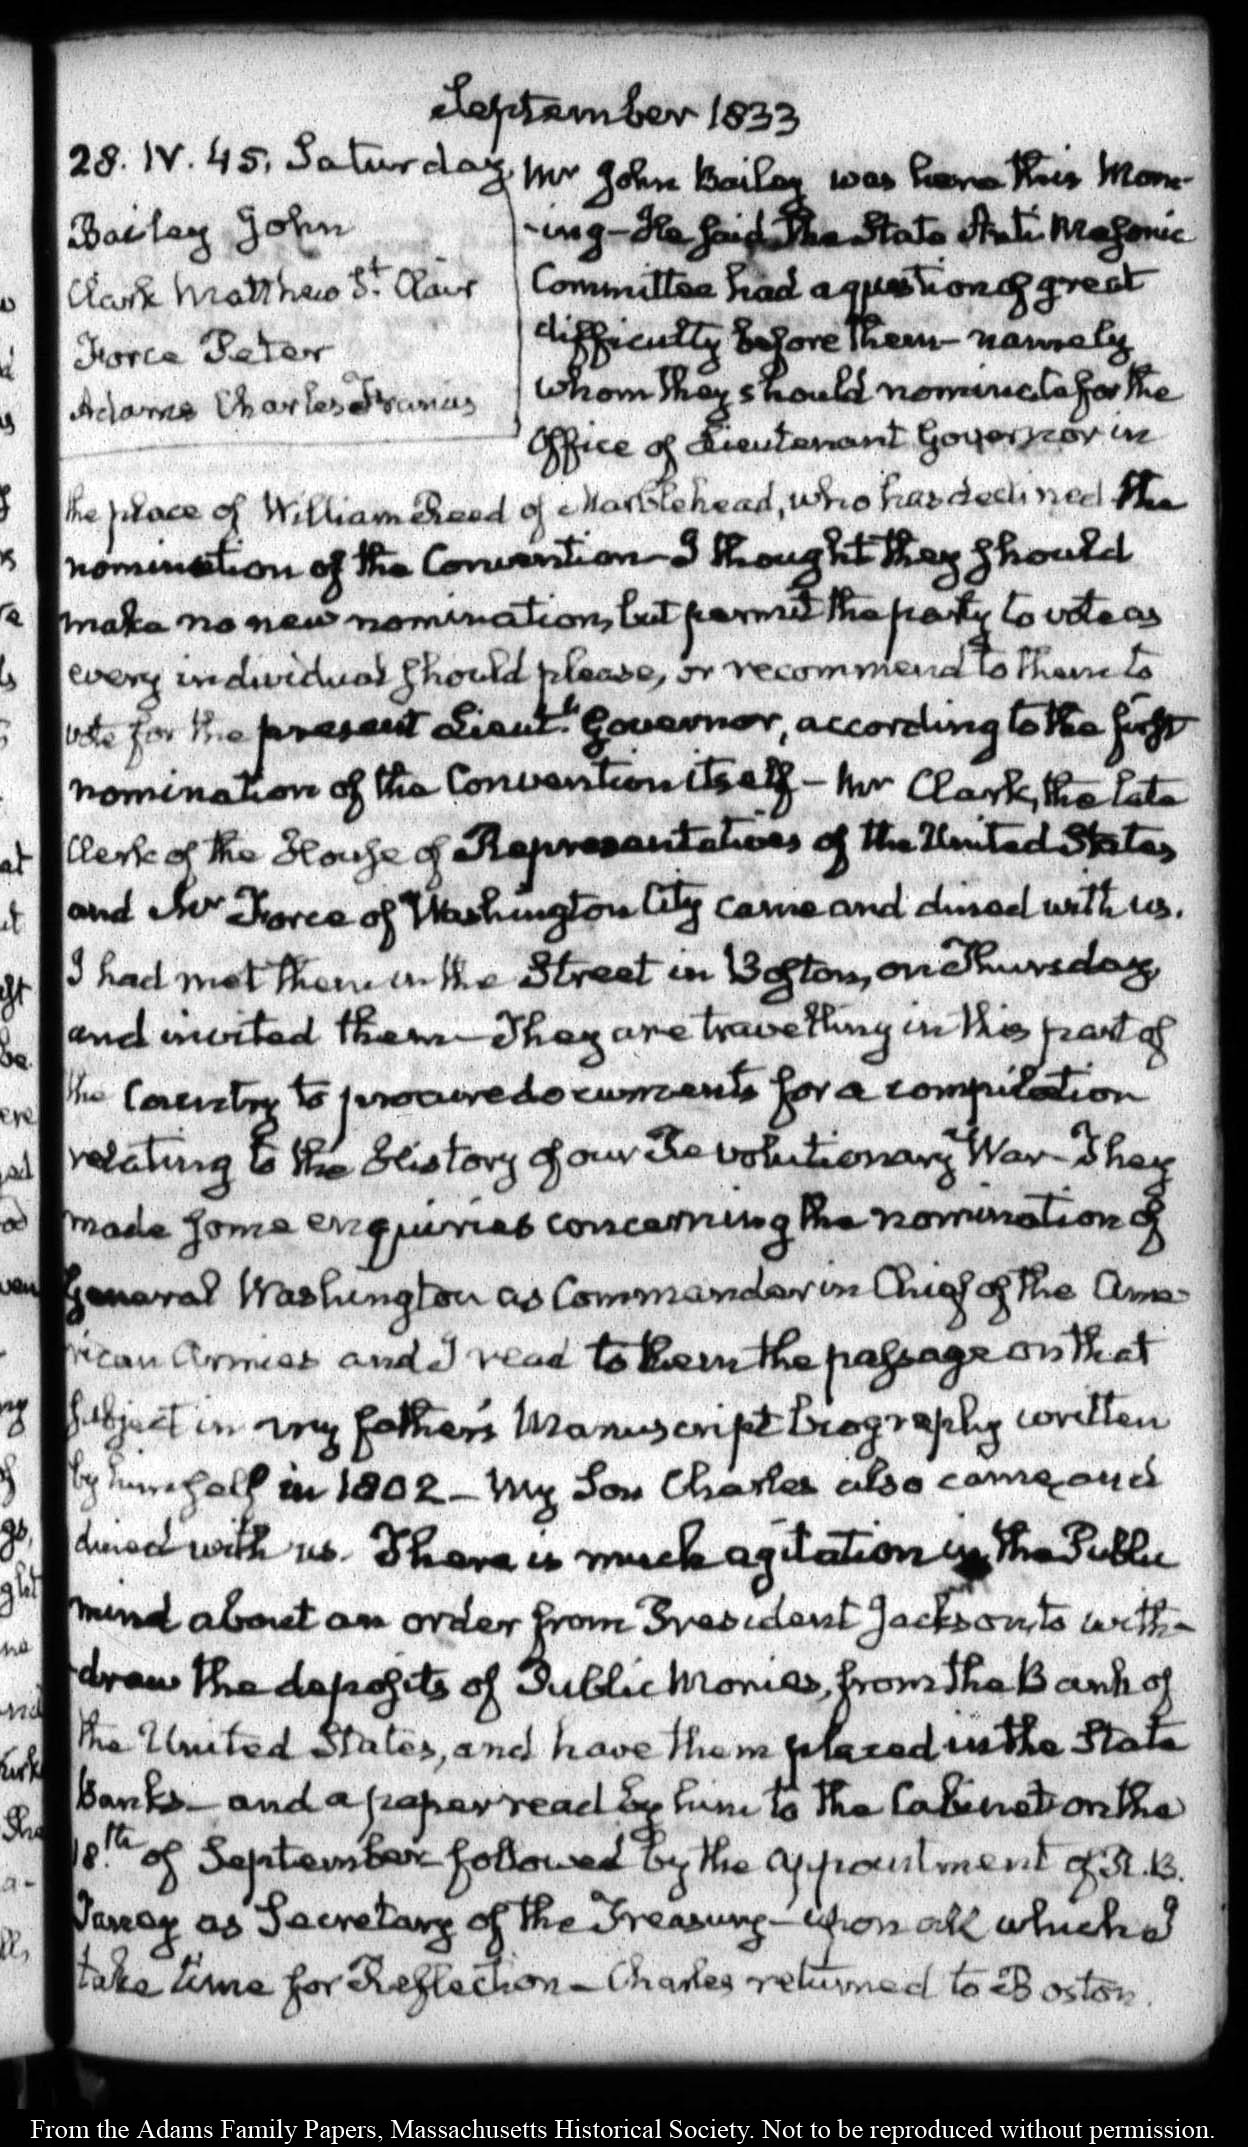 September 1833
28. IV. 45. Saturday.
Bailey John
Clark Matthew St. Clair
Force Peter
Adams Charles Francis
Mr John Bailey was here this Morn-
-ing — He said the State Anti Masonic
Committee had a question of great
difficulty before them — namely
whom they should nominate for the
Office of Lieutenant Governor in
the place of William Reed of Marblehead, who has declined the
nomination of the Convention — I thought they should
make no new nomination, but permit the party to vote as
every individual should please, or recommend to them to
vote for the present Lieutt. Governor, according to the first
nomination of the Convention itself — Mr Clark, the late
Clerk of the House of Representatives of the United States
and Mr Force of Washington City came and dined with us.
I had met them in the Street in Boston, on Thursday,
and invited them — They are travelling in this part of
the Country to procure documents for a compilation
relating to the History of our Revolutionary War — They
made some enquiries concerning the nomination of
General Washington as Commander in Chief of the Ame-
rican Armies and I read to them the passage on that
subject in my father's Manuscript biography written
by himself in 1802 — My Son Charles also came, and
dined with us. There is much agitation in the Public
mind about an order from President Jackson, to with-
-draw the deposits of Public Monies, from the Bank of
the United States, and have them placed in the State
Banks — and a paper read by him to the Cabinet on the
18.th of September followed by the appointment of R. B.
Taney as Secretary of the Treasury — upon all which I
take time for Reflection — Charles returned to Boston.
From the Adams Family Papers, Massachusetts Historical Society. Not to be reproduced without permission.